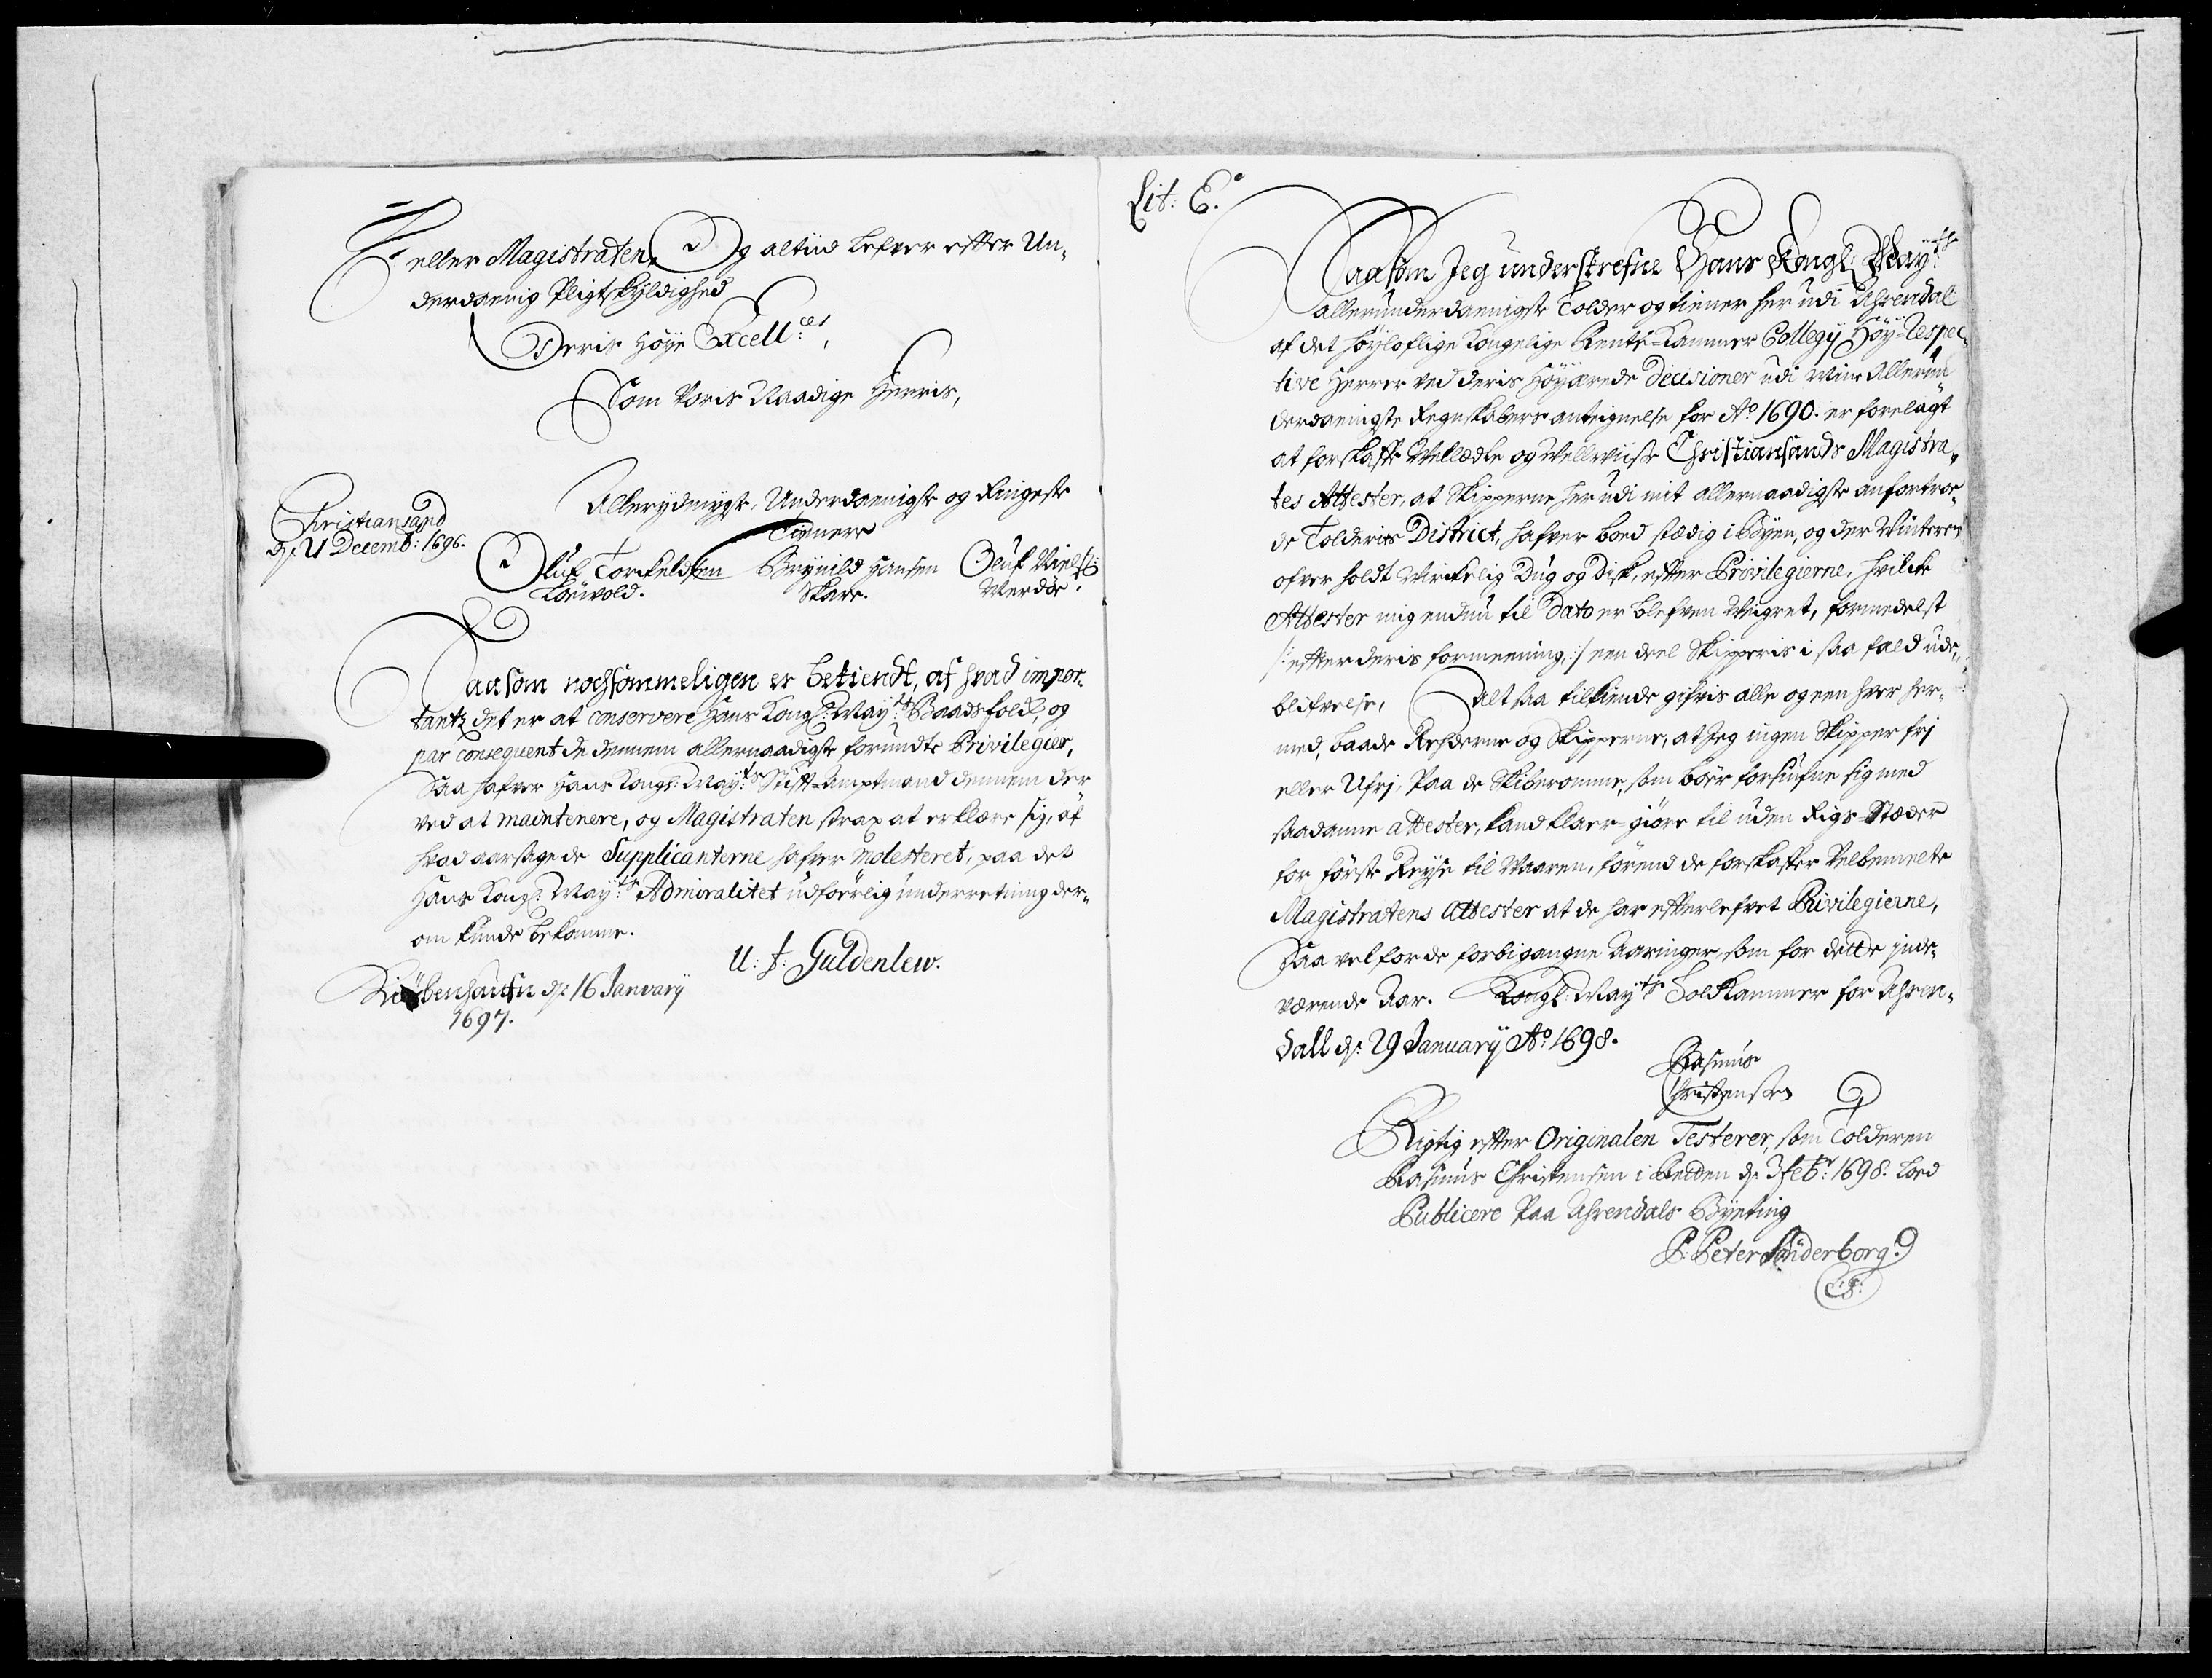 eller Magistraten, Og altiid lefver efter Un-
derdaenig Pligtskyldighed
Deris Høye Excell:ces,
Som Voris Naadige Herris,
Allerydmygste, Underdaenigste og Ringeste
Tienere
Christiansand
d: 21 Decemb: 1696.
Oluf Torckeldsen Brynild Hansen Oluf Niels:
Skare.
Saasom nochsommeligen er bekiendt, af hvad impor-
tantz det er at conservere Hans Kongl: May:ts Baadsfolck, og
par consequent de dennem allernaadigste forundte Privilegier,
Saa hafver Hans Kongl: May:ts Stift-amptmand dennem der
ved at maintenere, og Magistraten strax at erklære sig, af
hvad aarsage de Supplicanterne hafver molesteret, paa det
Hans Kongl: May:ts Admiralitet udførlig underretning der-
om kunde bekomme.
U: f: Guldenlew.
Kiøbenhaufn d: 16 January
1697.
Lit: E.
Saasom Jeg underskrefne Hans Kongl: May:ts
allerunderdaenigste Tolder og tiener her udi Ahrendal
af det høyloflige Kongelige Rente-Kammer Collegij Høy-Respec-
tive Herrer ved deris Høyærede Decisioner udi mine Allerun-
derdaenigste Regnskabers antegnelse for Ao 1690. er forelagt
at forskaffe Velædle og Velviise Christiansands Magistra-
tes Attester, at Skipperne her udi mit allernaadigste anfortroe-
de Tolderie District, hafver boed stædig i Byen, og der Vinteren
ofver holdt Virkelig Dug og Disk, efter Privilegierne, hvilcke
Attester mig endnu til Dato er blefven Veigret, formedelst
/: efter deris formeening, :/ een deel Skipperis i saa fald ude-
blifvelse, Alt saa tilkiende gifvis alle og een hver her-
med, baade Rehderne og Skipperne, at Jeg ingen Skipper frj
eller Ufrj, Paa de Skiberomme, som bør forsiufne sig med
saadanne attester, kand klaer-giøre til uden Rigs-Stæder
for første Reyse til Vaaren, førend de forskaffer Velbemelte
Magistratens Attester at de har efterlefvet Privilegierne,
Saa vel for de forbigangne Aaringer, som for dette inde-
værende Aar. Kongl: May:ts Tolkkammer for Ahren-
dall d: 29 January Ao 1698.
Rasmus
Christensen
Rigtig efter Originalen Testerer, som Tolderen
Rasmus Christensen i Retten d: 3 Feb: 1698. lod
Publicere Paa Ahrendals Byeting
P: Peter Sønderborg